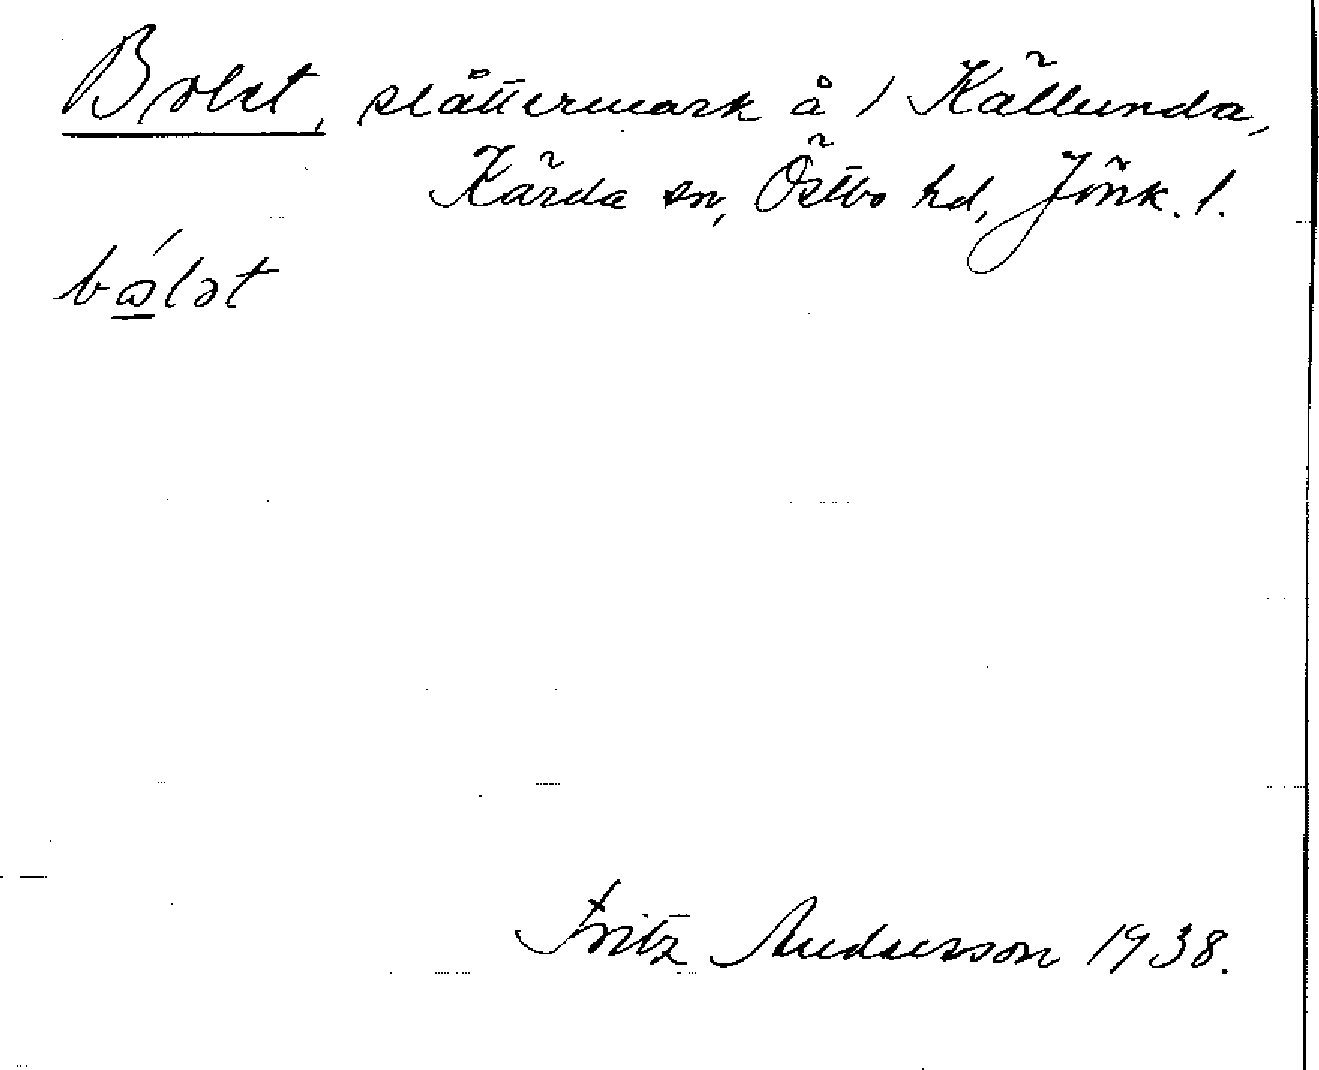 Bolet, slåttermark å 1 Källunda,
Kärda sn, Östbo hd, Jönk. l.
bólət
Fritz Andersson 1938.